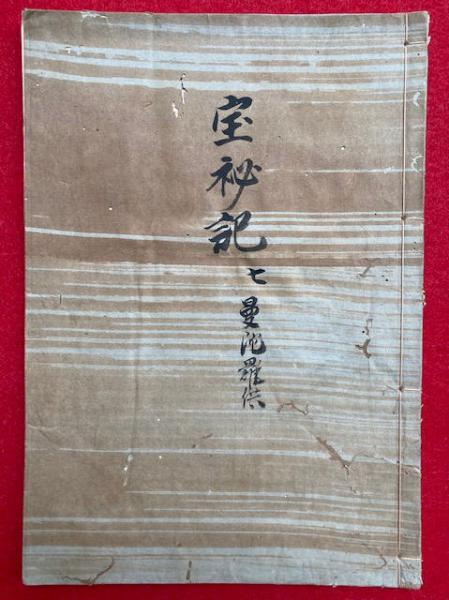 宝秘記 七 曼陀羅供